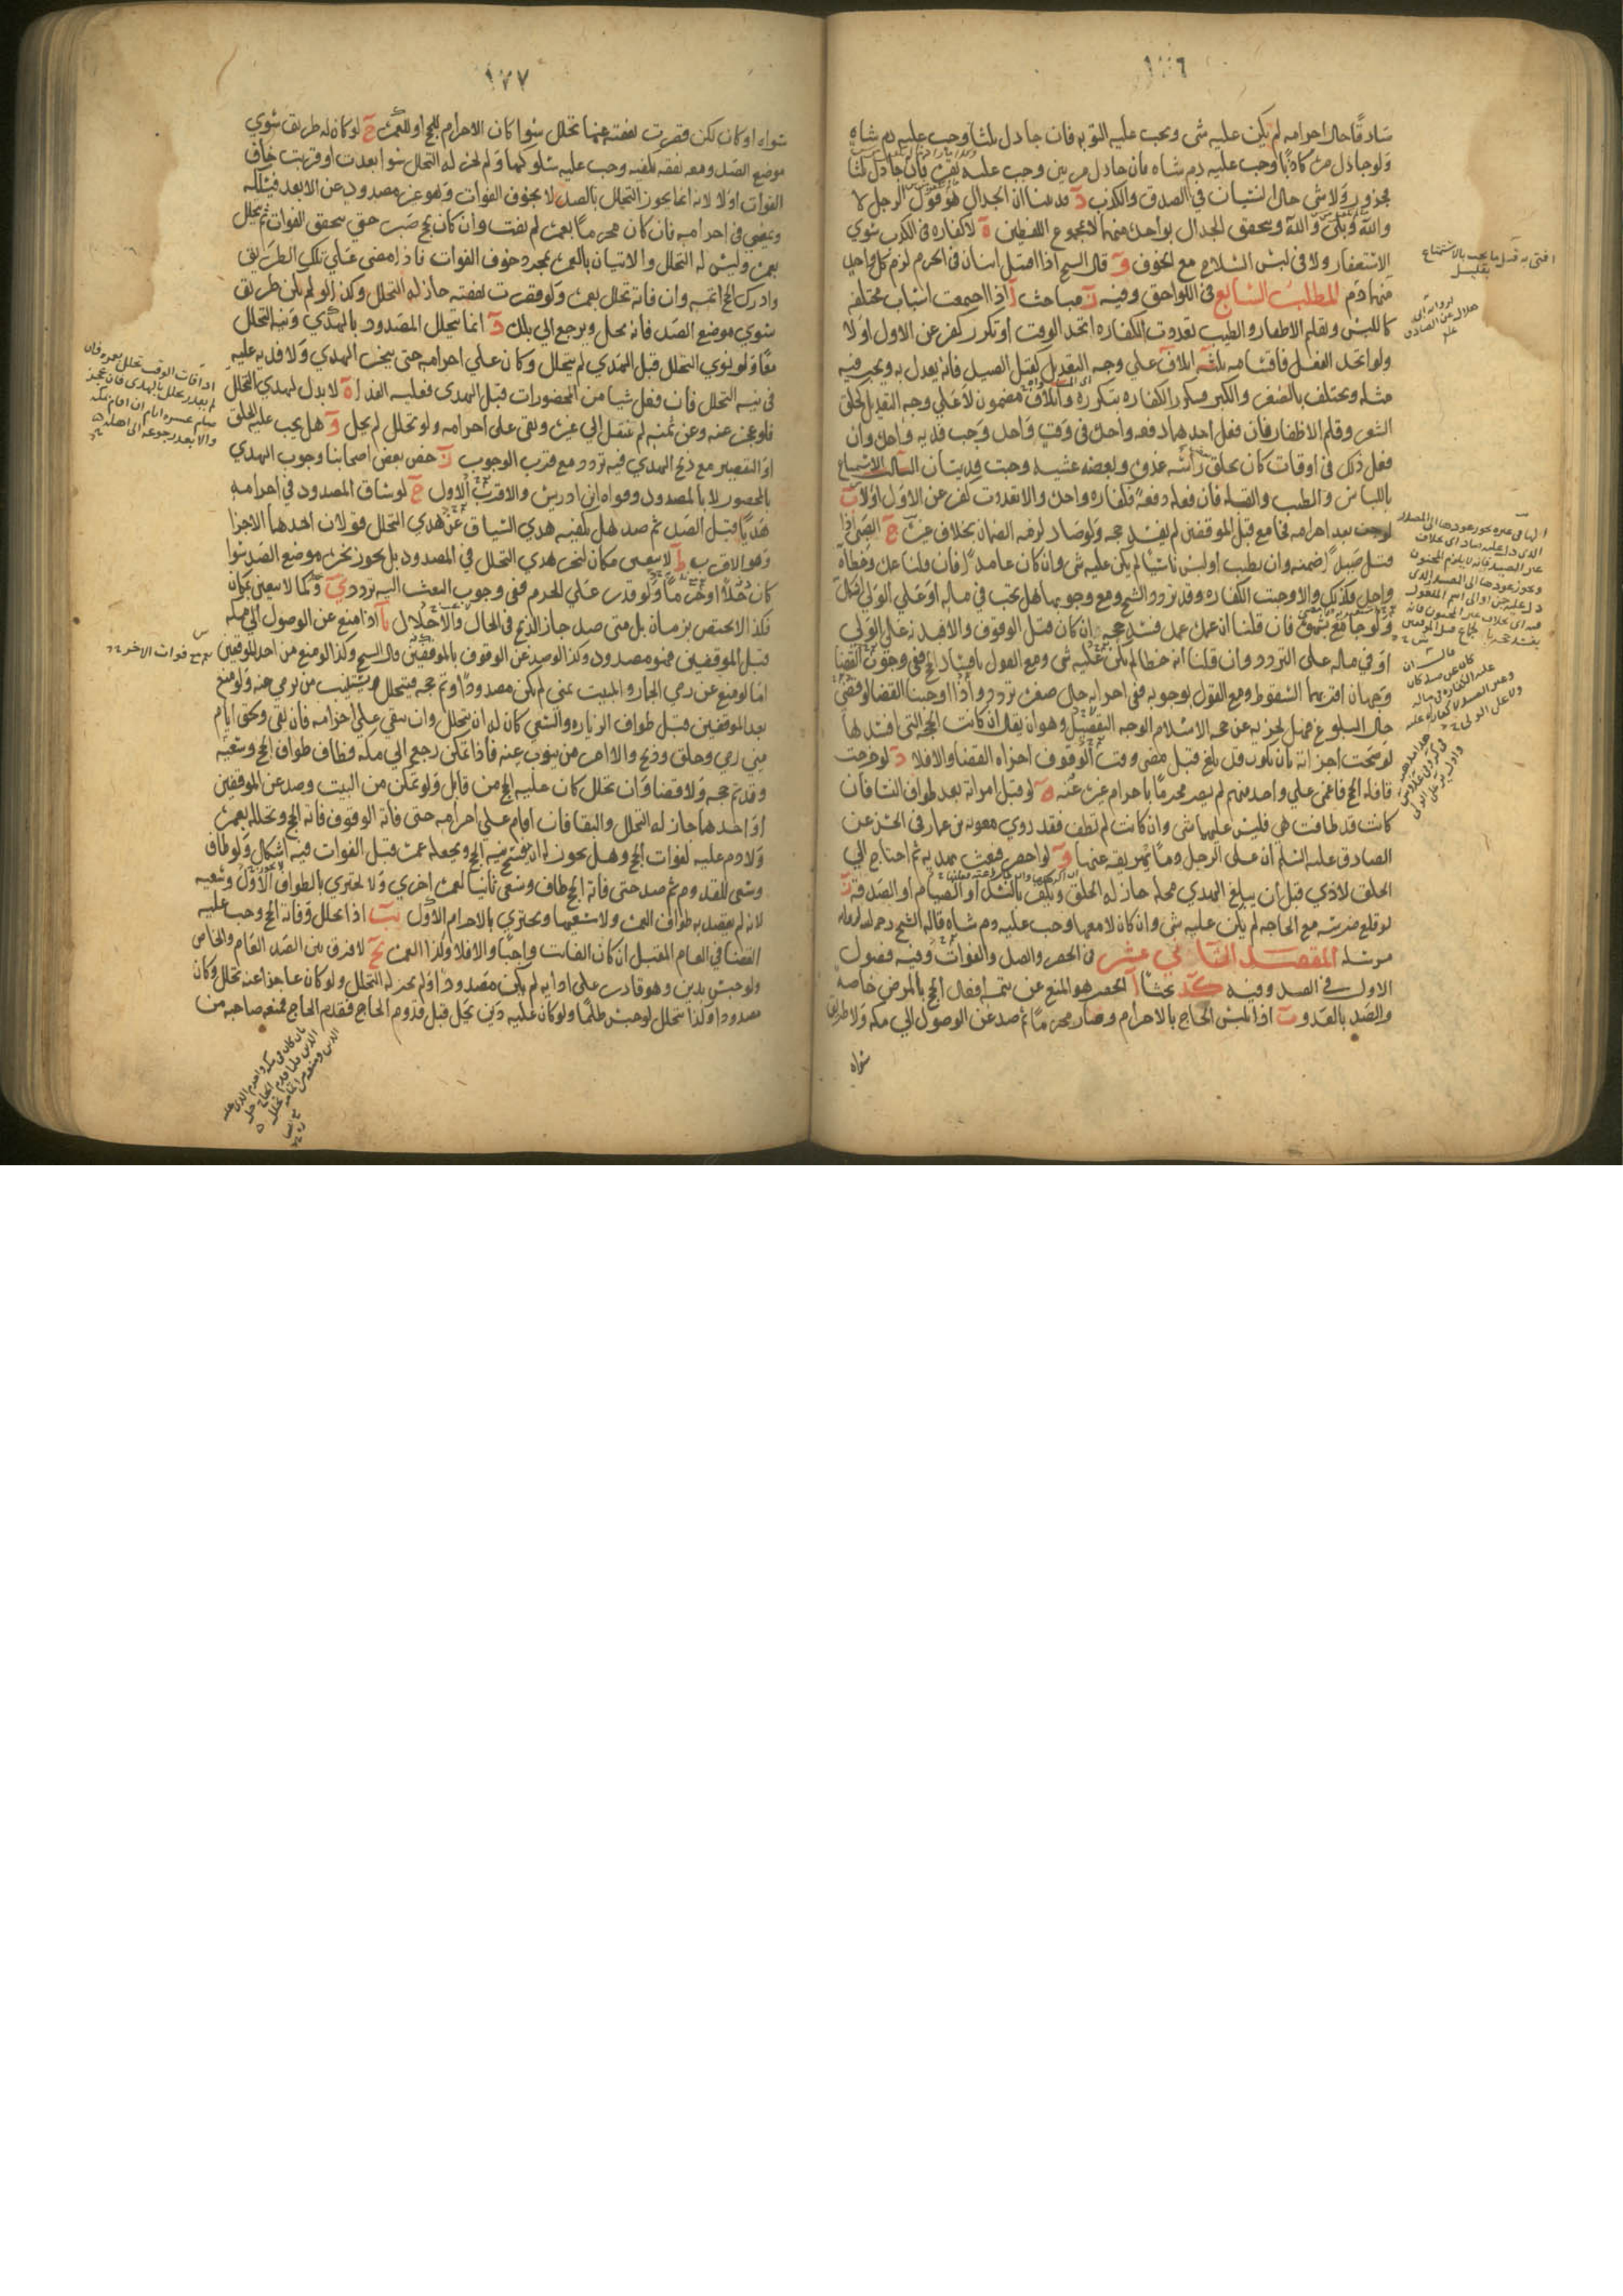 ١٧٦
صادقا حال احرامه لم يكن عليه شى ويجب عليه التوبه فان جادل ثلثا وجب عليه دم شاه
ولو جادل مرة كاذبا وجب عليه دم شاه فان جادل مرتين وجب عليه بقرة فان جادل ثلثا
جزور ولا شى حال النسيان في الصدق والكذب د قد بينا ان الجدال هو قول الرجل لا
والله وبلى والله ويتحقق الجدال بواحدة منهما لا بمجموع اللفظين ه لا كفاره في الكذب سوي
الاستغفار ولا في لبس السلاح مع الخوف و قال الشيخ اذا اقتتل اثنان في الحرم لزم كل واحد
منهما دم المطلب السابع في اللواحق وفيه ز مباحث ا اذا اجتمعت اسباب مختلفه
كاللبس وتقليم الاظفار والطيب تعددت الكفاره اتحد الوقت او تكرر كفر عن الاول او لا
ولو اتحد الفعل فاقسامه ثلثه اتلاف على وجه التعديل كقتل الصيد فانه يعدل به ويجب فيه
مثله ويختلف بالصغر والكبر فيكرر الكفاره بتكرره واتلاف مضمون لا على وجه التعديل كحلق
الشعر وقلم الاظفار فان فعل احدهما دفعه واحدة في وقت واحد وجب فديه واحدة وان
فعل ذلك في اوقات كان يحلق راسه غدوة وبعضه عشيه وجبت فديتان الثالث الاستمتاع
باللباس والطيب والقبله فان فعله دفعة فكفاره واحدة والا تعددت كفر عن الاول اولا ب
لو جن بعد احرامه فجامع قبل الموقفين لم يفسد حجه ولو صاد لزمه الضمان بخلاف ج الصبى اذا
قتل صيدا ضمنه وان تطيب او لبس ناسيا لم يكن عليه شى وان كان عامدا فان قلنا عمده وخطاه
واحد فكذلك والا وجبت الكفاره وقد تردد الشيخ ومع وجوبها هل تجب في ماله او على الولي اشكال
ولو جامع بشهوة فان قلنا ان عمده عمد فسد حجه ان كان قبل الوقوف والا فبدنه على الولي
او في ماله على التردد وان قلنا انه خطا لم يكن عليه شى ومع القول بافساد الحج ففي وجوب القضا
وجهان اقربهما السقوط ومع القول بوجوبه ففي اجزائه حال صغره تردد واذا اوجبنا القضا لو قضى
حال البلوغ فهل يجزيه عن حجه الاسلام الوجه التفصيل وهو ان يقال ان كانت الحجه التي افسدها
لو صحت اجزاته بان يكون قد بلغ قبل مضى وقت الوقوف اجزاه القضا والا فلا د لو خرجت
قافله الحج فاغمى على واحد منهم لم يصر محرما باحرام غيره عنه ه لو قبل امراته بعد طواف النسا فان
كانت قد طافت هي فليس عليهما شى وان كانت لم تطف فقد روي معويه بن عمار في الحسن عن
الصادق عليه السلم ان على الرجل دما يهريقه عنها و لو احصر فبعث بهديه ثم احتاج الي
الحلق لاذي قبل ان يبلغ الهدي محله جاز له الحلق ويكفر بالنسك او الصيام او الصدقه ز
لو قلع ضرسه مع الحاجه لم يكن عليه شى وان كان لا معها وجب عليه دم شاه قاله الشيخ رحمه الله لروايه
مرسله المقصد الثاني عشر في الحصر والصد والفوات وفيه فصول
الاول في الصد وفيه كد بحثا ا الحصر هو المنع عن تتمه افعال الحج بالمرض خاصه
والصد بالعدو ب اذا تلبس الحاج بالاحرام وصار محرما ثم صد عن الوصول الي مكه ولا طريق
سواه
١٧٧
سواه او كان لكن قصرت نفقته عنها تحلل سوا كان الاحرام للحج او للعمرة ج لو كان له طريق سوي
موضع الصد ومعه نفقه تكفيه وجب عليه سلوكها ولم يجز له التحلل سوا بعدت او قربت خاف
الفوات او لا لانه انما يجوز التحلل بالصد لا بخوف الفوات وهو غير مصدود عن الابعد فيسلكه
ويمضي في احرامه فان كان محرما بعمرة لم تفت وان كان بحج صبر حتى يتحقق الفوات ثم يتحلل
بعمرة وليس له التحلل والاتيان بالعمرة بمجرد خوف الفوات فاذا مضى على تلك الطريق
وادرك الحج اتمه وان فاته تحلل بعمرة ولو قصرت نفقته جاز له التحلل وكذا لو لم يكن طريق
سوي موضع الصد فانه يحل ويرجع الي بلده د انما يتحلل المصدود بالهدي ونيه التحلل
معا ولو نوي التحلل قبل الهدي لم يتحلل وكان على احرامه حتى ينحر الهدي ولا فديه عليه
في نيه التحلل فان فعل شيا من المحضورات قبل الهدي فعليه الفدا ه لا بدل لهدي التحلل
فلو عجز عنه وعن ثمنه لم ينتقل الي غيره وبقى على احرامه ولو تحلل لم يحل و هل يجب عليه الحلق
او التقصير مع ذبح الهدي فيه تردد مع قرب الوجوب ز خص بعض اصحابنا وجوب الهدي
بالمحصور لا بالمصدود وقواه ابن ادريس والاقرب الاول ح لو ساق المصدود في احرامه
هديا قبل الصد ثم صد هل يكفيه هدي السياق عن هدي التحلل قولان احدهما الاجزا
وهو الاقرب ط لا يتعين مكان لنحر هدي التحلل في المصدود بل يجوز نحره موضع الصد سوا
كان حلا او حرما ولو قدر على الحرم ففي وجوب البعث اليه تردد ي وكما لا يتعين بمكان
فكذا لا يختص بزمان بل متى صد جاز الذبح في الحال والاحلال يا اذا منع عن الوصول الي مكه
قبل الموقفين فهو مصدود وكذا لو صد عن الوقوف بالموقفين قال الشيخ وكذا لو منع من احد الموقفين
اما لو منع عن رمي الجمار والمبيت بمني لم يكن مصدودا وتم حجه فيتحلل ويستنيب من يرمي عنه ولو منع
بعد الموقفين قبل طواف الزياره والسعي كان له ان يتحلل وان يبقي على احرامه فان بقى ولحق ايام
مني رمي وحلق وذبح والا امر من ينوب عنه فاذا تمكن رجع الي مكه وطاف طواف الحج وسعيه
وقد تم حجه ولا قضا وان تحلل كان عليه الحج من قابل ولو تمكن من البيت وصد عن الموقفين
او احدهما جاز له التحلل والبقا فان اقام على احرامه حتى فاته الوقوف فاته الحج وتحلل بعمرة
ولا دم عليه لفوات الحج وهل يجوز له ان يفسخ نيه الحج ويجعله عمرة قبل الفوات فيه اشكال ولو طاف
وسعى للقدوم ثم صد حتى فاته الحج طاف وسعى ثانيا لعمرة اخري ولا يجتزي بالطواف الاول وسعيه
لانه لم يقصد به طواف العمرة ولا سعيها ويجتزي بالاحرام الاول يب اذا تحلل وفاته الحج وجب عليه
القضا في العام المقبل ان كان الفايت واجبا والا فلا وكذا العمرة يج لا فرق بين الصد العام والخاص
ولو حبس بدين وهو قادر على ادايه لم يكن مصدودا ولم يجز له التحلل ولو كان عاجزا عنه تحلل وكان
مصدودا وكذا يتحلل لو حبس ظلما ولو كان عليه دين يحل قبل قدوم الحاج فقدم الحاج فمنعه صاحبه من